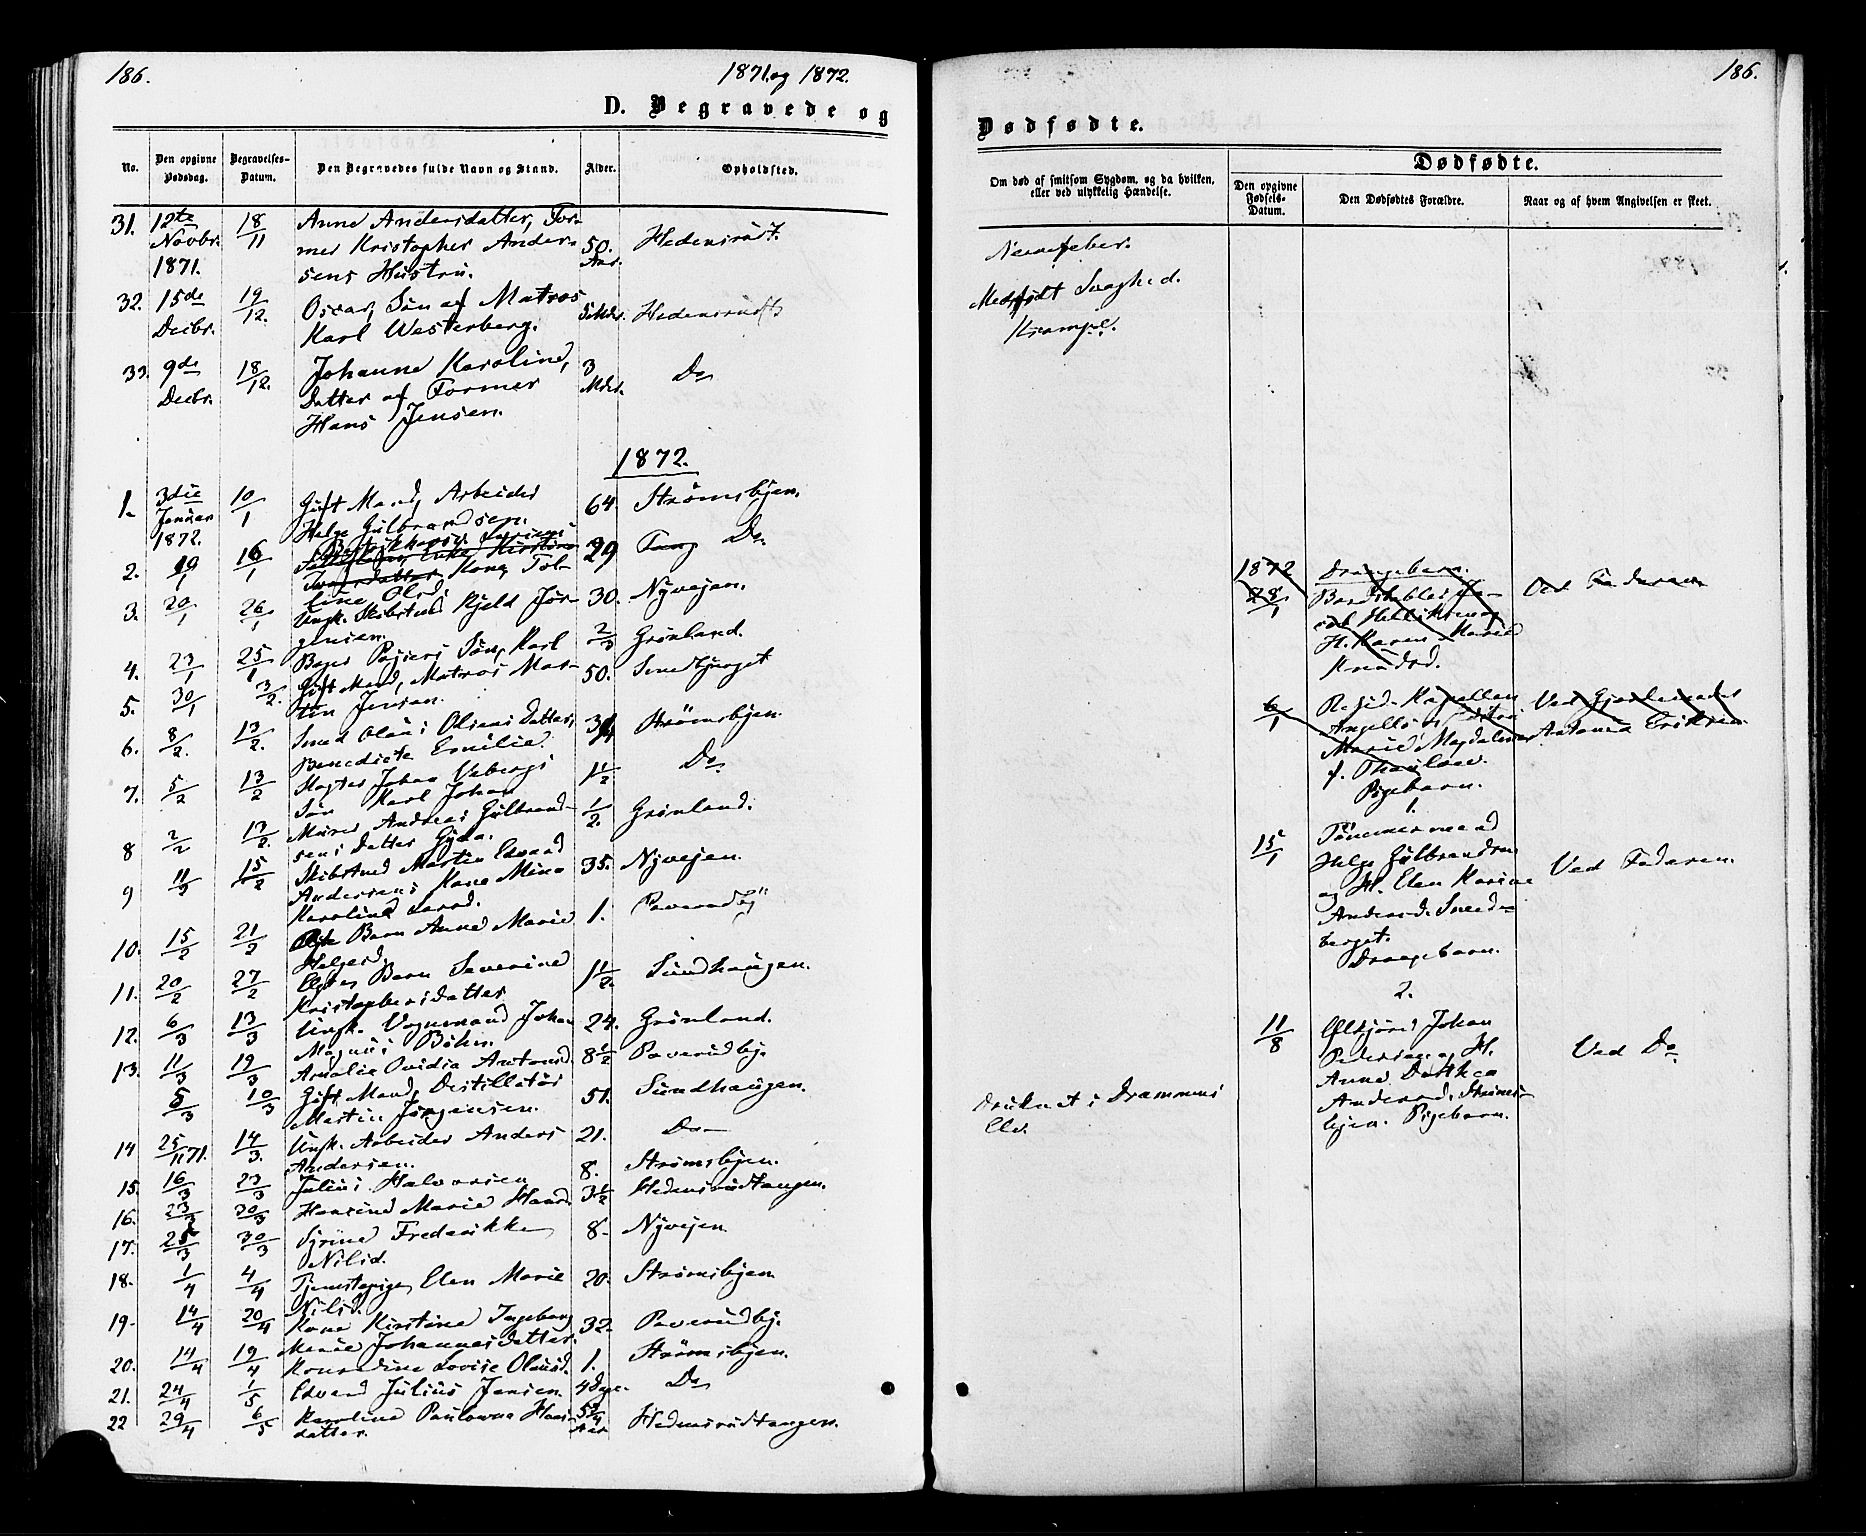 186.
1871 og 1872.
D. Begravede og
No.
Den opgivne Dødsdag.
Begravelses-Datum.
Den Begravedes fulde Navn og Stand.
Alder.
Opholdsted.
31. 12te Novbr. 1871. 18/11 Anne Andersdatter, For-
mer Kristopher Ander-
sens Hustru. 50. Aar. Hedensrudt.
32. 15de Decbr. 19/12. Oscar, Søn af Matros
Karl Westerberg. Hedensrudt
33. 9de Decbr. 18/12. Johanne Karoline,
Datter af Former
Hans Jensen. 3 Mdr. Do
1872.
1. 3die Januar 1872. 10/1 Gift Mand, Arbeider
Helge Gulbrandsen. 64. Strømsbyen.
2. 16/1 Kone
Tol-
line Olsd. 29 Tang Do.
3. 20/1 26/1 Ungk. Skibstmd Kjeld Jør-
gensen. 30. Nyvejen.
4. 23/1 25/1 Søn, Karl 2/3 Grønland.
5. 30/1 3/2. Gift Mand, Matros Mar-
tin Jensen. 50. Smedbjerget
6. 8/2. 13/2. Smed Olaus Olsens Datter,
Benedicte Emilie. Strømsbyen.
7. 5/2 13/2 Johan
Søn Karl Johan 1 1/2 Do
8 2/2 13/2. Murer Andreas Gulbrand-
sens Datter Gyda. 1/2. Grønland.
9 11/2 15/2 Skibstmd Martin Edvard
Andersens Kone Mina
Karoline Larsd. 35. Nyvejen.
10. 15/2 21/2 Barn Anne Marie
Helgesd. 1.
11. 20/2 27/2 Barn Severine
Kristophersdatter 1 1/2. Sundhaugen.
12. 6/3 13/3 Ungk. Vognmand Johan
Magnus Böhm. 24. Grønland.
13. 11/3 19/3 Amalie Ovidia Antonsd. 8 1/2 Paverudby.
5/3 10/3 Gift Mand, Destillatør
Martin Jørgensen. 51. Sundhaugen.
14 25/11 71. 14/3. Ungk. Arbeider Anders
Andersen. 21. Do
15. 16/3 23/3 Julius Halvorsen 8. Strømsbyen.
16. 23/3 30/3 Hansine Marie Hansd. 3 1/2 Hedensrudtangen.
17. 25/3 30/3 Syrine Frederikke
Nilsd. 8. Nyvejen.
18. 1/4 4/4 Tjenestepige, Elen Marie
Nilsd. 20. Strømsbyen.
19. 14/4 20/4 Kone Kirstine Ingeborg
Marie Johannesdatter. 32. Paverudby.
20. 14/4 19/4 Konradine Lovise Olausd. 1. Strømsbyen.
21. 24/4 1/5 Edvard Julius Jensen. 4 Dage. Do
22 29/4 6/5 Karoline Paulowna Hans-
datter. Aar Hedensrudtangen.
186.
Dødfødte.
Om død af smitsom Sygdom, og da hvilken,
eller ved ulykkelig Hændelse.
Dødfødte.
Den opgivne Fødsels-Datum.
Den Dødfødtes Forældre.
Naar og af hvem Angivelsen er skeet.
Nervefeber.
Medfødt Svaghed.
Krampe.
1872 28/1 Drengebarn.
H. Karen Marie
Knudsd. Ved Faderen
6/1 Resid. Kapellan
Marie Magdalene
f. Thaulow.
Pigebarn. Ved Gjordemoder
Antonia Eriksen
1.
15/1 Tømmermand
Helge Gulbrandsen
og H. Elen Karine
Andersd. Smed-
berget.
Drengebarn. Ved Faderen.
2.
11/8 Johan
Pedersen og H.
Anne Dorthea
Andersd. Strøms-
byen. Pigebarn. Ved Do
Druknet i Drammens
Elv.